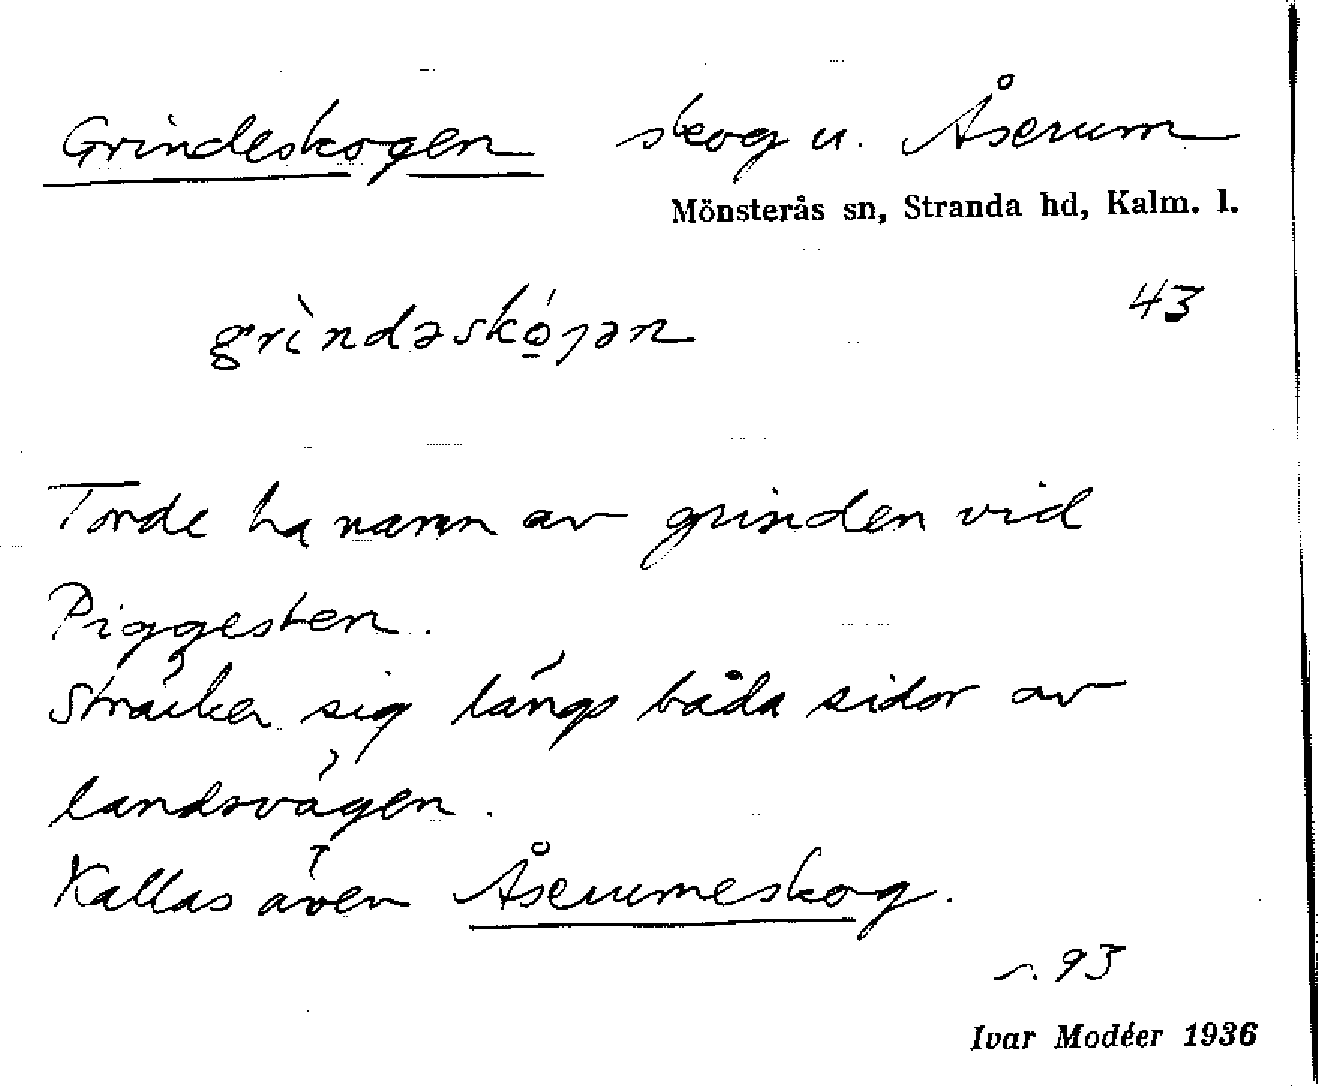 Grindeskogen skog u. Åserum
Mönsterås sn, Stranda hd, Kalm. l.
43
grìndəskó̱ȷən
Torde ha namn av grinden vid
Piggesten.
Sträcker sig längs båda sidor av
landsvägen.
Kallas även Åserumeskog.
s. 93
Ivar Modéer 1936